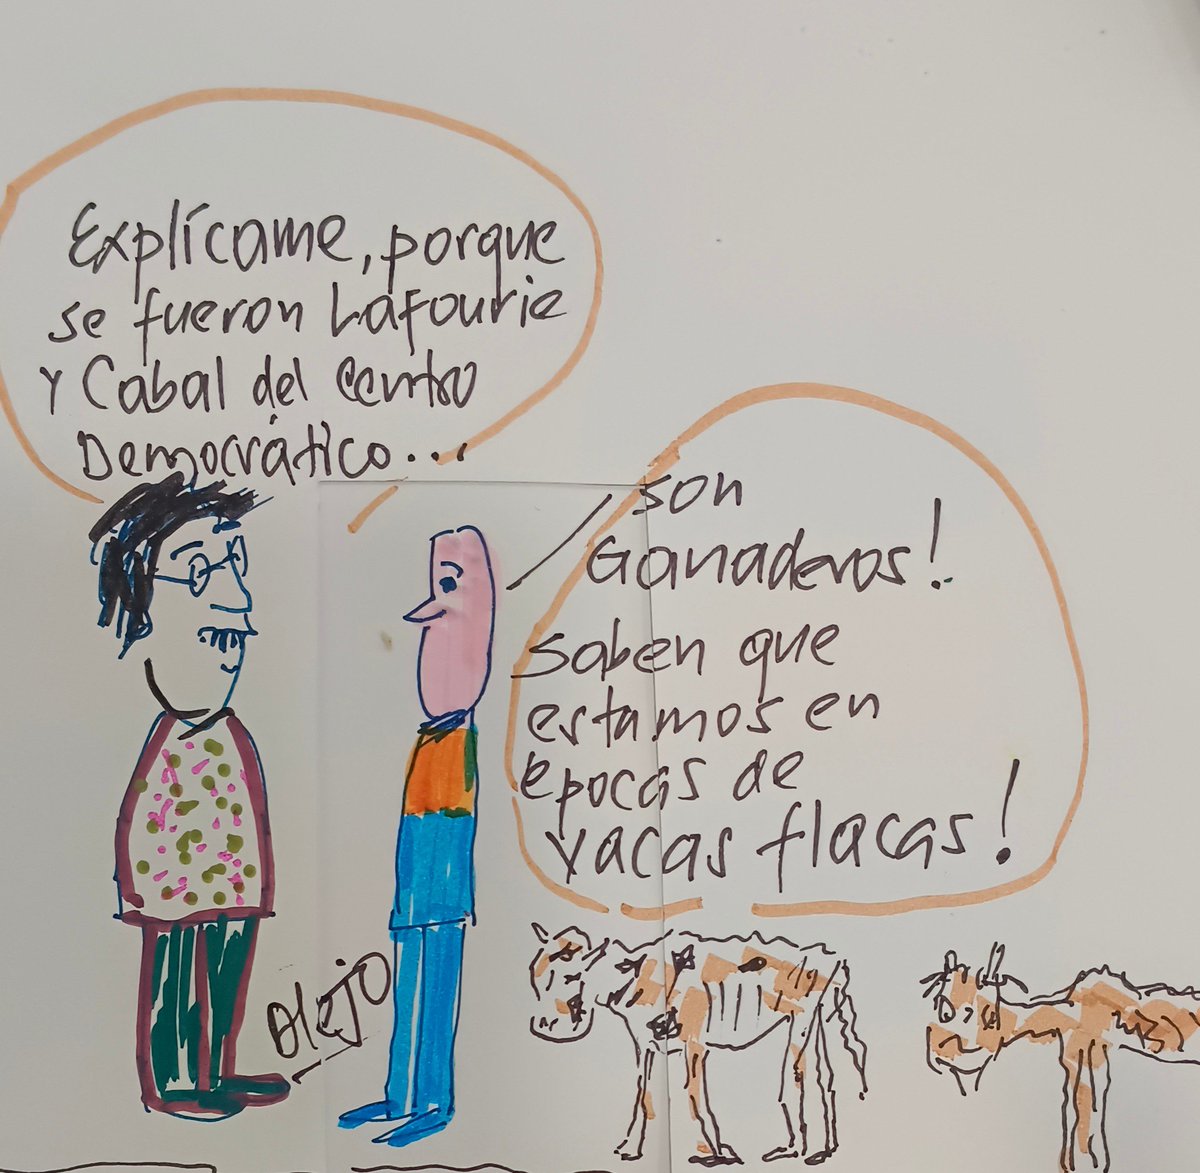 Explícame, porque
se fueron Lafourie
y Cabal del centro
Democrático...
son
Ganaderos!
saben que
estamos en
epocas de
vacas flacas!
Alejo